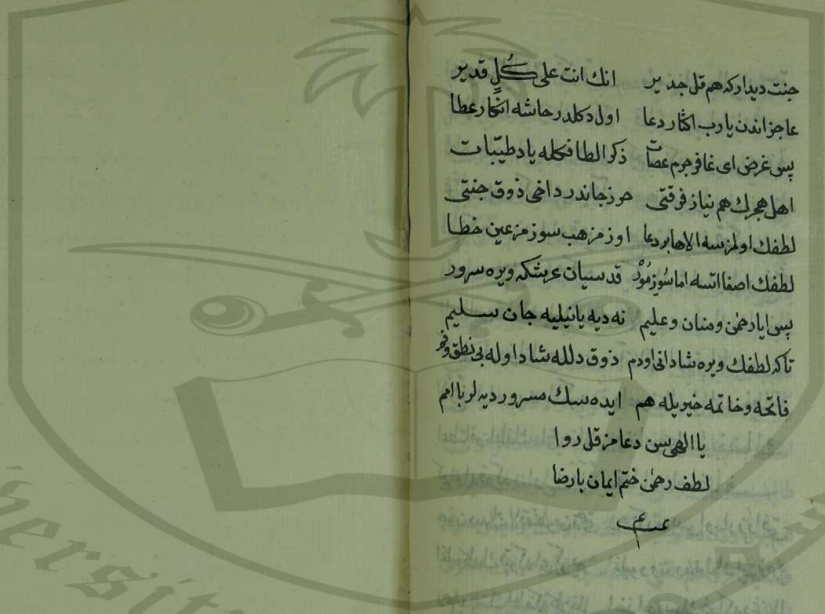 جنت ديداركه هم قل جدير انك انت على كل قدير
عاجزاندن يارب اكثار دعا اول دكلدر حاشه انكار عطا
پس غرض اى غافر جرم عصات ذكر الطافكله ياد طيبات
اهل هجرك هم نياز فرقتى حرز جاندر داخى ذوق جنتى
لطفك اولمزسه الاها بر دعا اوزمز هب سوزمز عين خطا
لطفك اصغا اتسه اما سوزمزد قدسيان عرشكه ويره سرور
پس ايا رحمن ومنان وعليم نه ديه يا نيليه جان سليم
تاكه لطفك ويره شادانى اودم ذوق دلله شاد اوله بى نطق وفم
فاتحه وخاتمه خيريله هم ايده سك مسرور ديه لر با امم
يا الهى سن دعامز قل روا
لطف رحمن ختم ايمان با رضا